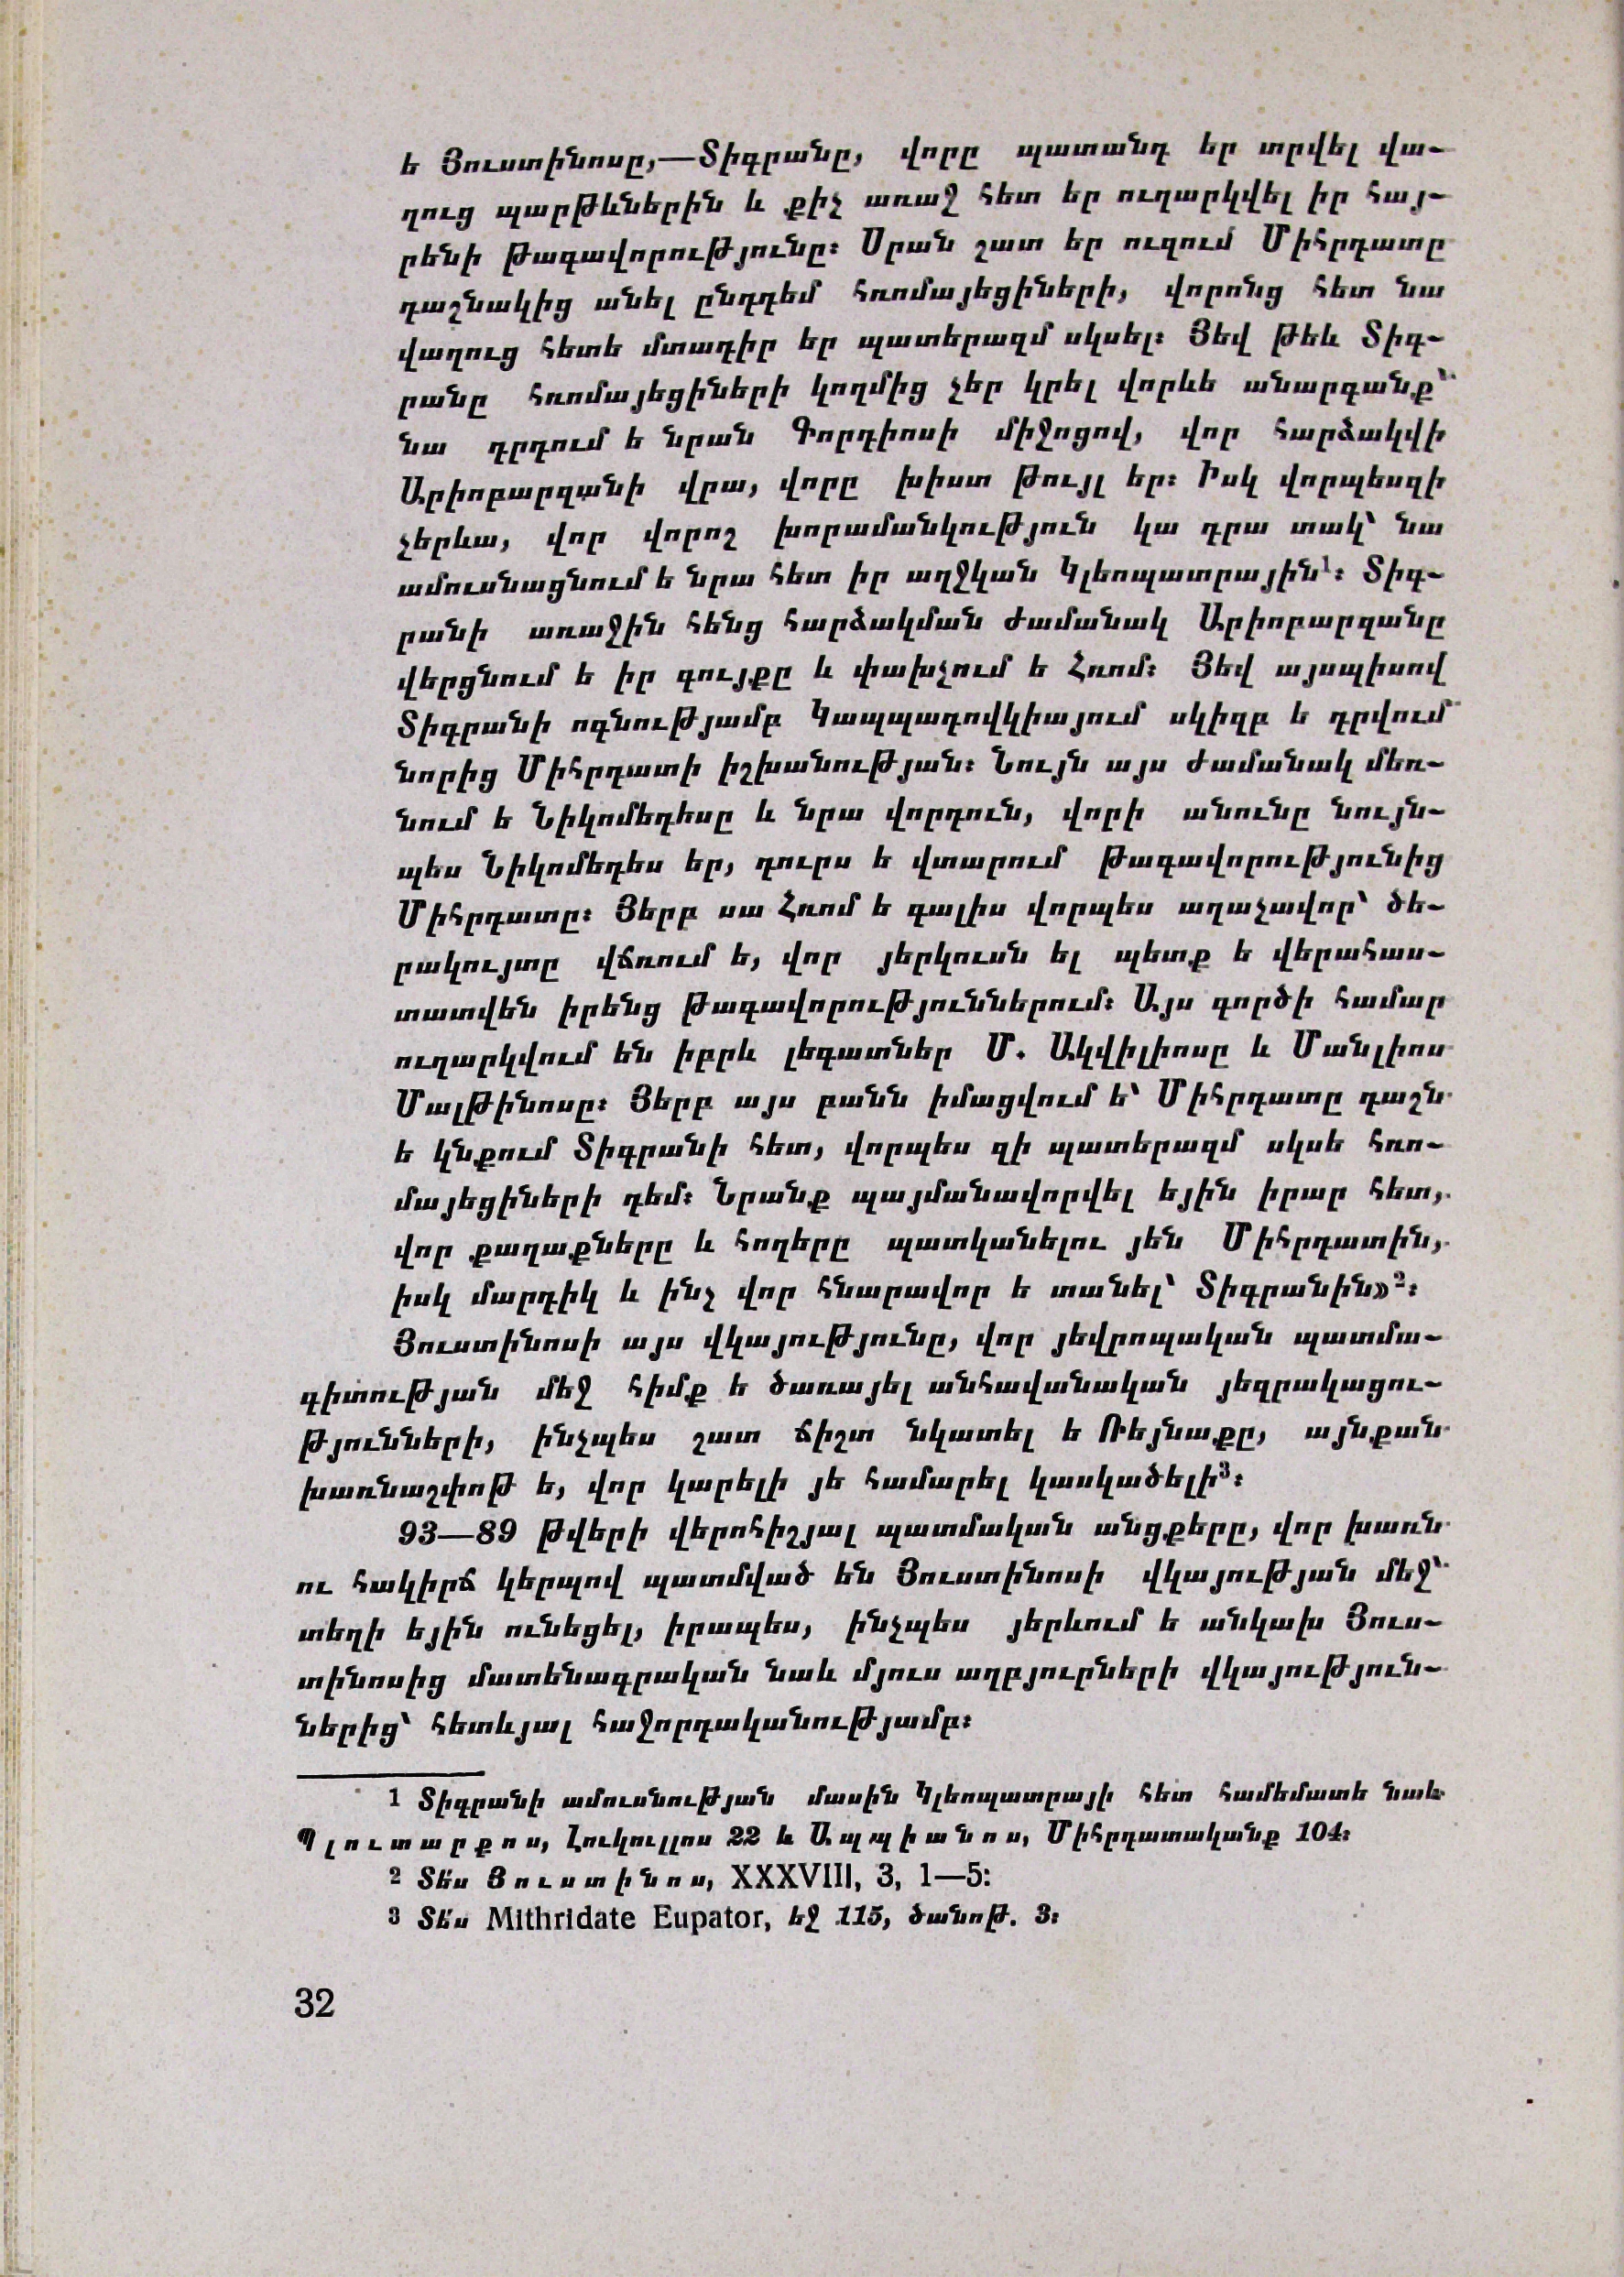 ե Յուստինոսը,—Տիգրանը, վորը պատանդ եր տրվել վա-
ղուց պարթևներին և քիչ առաջ հետ եր ուղարկվել իր հայ-
րենի թագավորությունը։ Սրան շատ եր ուզում Միհրդատը
դաշնակից անել ընդդեմ հռոմայեցիների, վորոնց հետ նա
վաղուց հետե մտադիր եր պատերազմ սկսել։ Յեվ թեև Տիգ-
րանը հռոմայեցիների կողմից չեր կրել վորևե անարգանք՝
նա դրդում ե նրան Գորդիոսի միջոցով, վոր հարձակվի
Արիոբարզանի վրա, վորը խիստ թույլ եր։ Իսկ վորպեսզի
չերևա, վոր վորոշ խորամանկություն կա դրա տակ՝ նա
ամուսնացնում ե նրա հետ իր աղջկան Կլեոպատրային¹։ Տիգ-
րանի առաջին հենց հարձակման ժամանակ Արիոբարզանը
վերցնում ե իր գույքը և փախչում ե Հռոմ։ Յեվ այսպիսով
Տիգրանի ոգնությամբ Կապպադովկիայում սկիզբ ե դրվում
նորից Միհրդատի իշխանության։ Նույն այս ժամանակ մեռ-
նում ե Նիկոմեդեսը և նրա վորդուն, վորի անունը նույն-
պես Նիկոմեդես եր, դուրս ե վտարում թագավորությունից
Միհրդատը։ Յերբ սա Հռոմ ե գալիս վորպես աղաչավոր՝ ծե-
րակույտը վճռում ե, վոր յերկուսն ել պետք ե վերահաս-
տատվեն իրենց թագավորություններում։ Այս գործի համար
ուղարկվում են իբրև լեգատներ Մ. Ակվիլիոսը և Մանլիոս
Մալթինոսը։ Յերբ այս բանն իմացվում ե՝ Միհրդատը դաշն
ե կնքում Տիգրանի հետ, վորպես զի պատերազմ սկսե հռո-
մայեցիների դեմ։ Նրանք պայմանավորվել եյին իրար հետ,
վոր քաղաքները և հողերը պատկանելու յեն Միհրդատին,
իսկ մարդիկ և ինչ վոր հնարավոր ե տանել՝ Տիգրանին»²։
Յուստինոսի այս վկայությունը, վոր յեվրոպական պատմա-
գիտության մեջ հիմք ե ծառայել անհավանական յեզրակացու-
թյունների, ինչպես շատ ճիշտ նկատել ե Ռեյնաքը, այնքան
խառնաշփոթ ե, վոր կարելի յե համարել կասկածելի³։
93—89 թվերի վերոհիշյալ պատմական անցքերը, վոր խառն
ու հակիրճ կերպով պատմված են Յուստինոսի վկայության մեջ՝
տեղի եյին ունեցել, իրապես, ինչպես յերևում ե անկախ Յուս-
տինոսից մատենագրական նաև մյուս աղբյուրների վկայություն-
ներից՝ հետևյալ հաջորդականությամբ։
1 Տիգրանի ամուսնության մասին Կլեոպատրայի հետ համեմատե նաև
Պլուտարքոս, Լուկուլլոս 22 և Ապպիանոս, Միհրդատականք 104։
2 Տե՛ս Յուստինոս, XXXVIII, 3, 1—5։
3 Տե՛ս Mithridate Eupator, եջ 115, ծանոթ. 3։
32